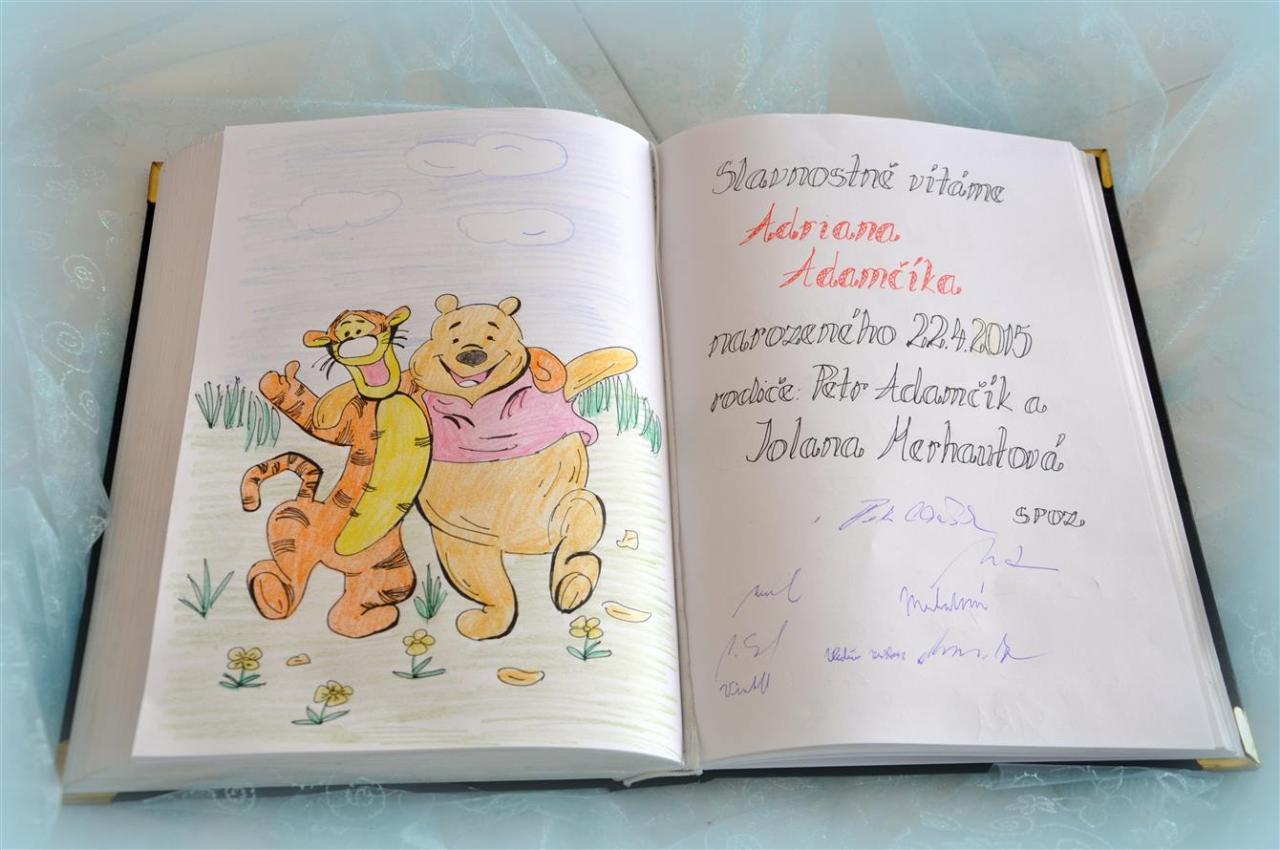 Slavnostně vítáme
Adriana
Adamčíka
narozeného 22.4.2015
rodiče: Petr Adamčík a
Jolana Merhautová
SPOZ